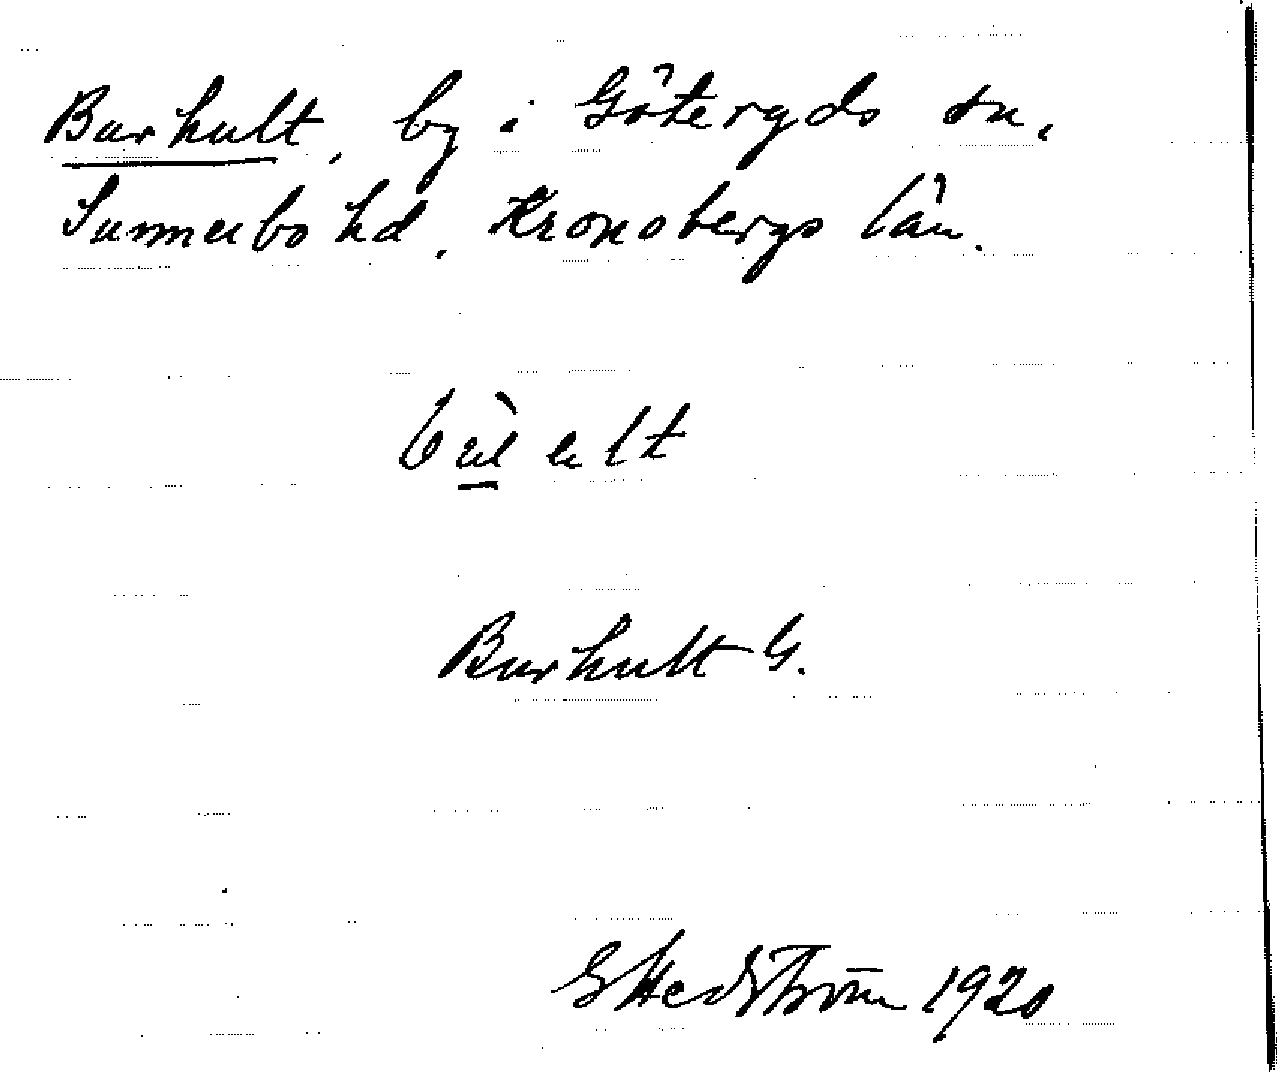 Burhult, by i Göteryds sn,
Sunnerbo hd. Kronobergs län.
Burhult G.
GHedström 1920